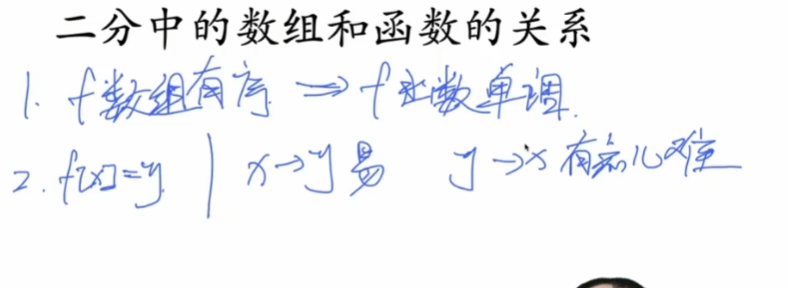 二分中的数组和函数的关系
1. f数组有序 => f函数单调.
2. f[x]=y. | x→y 易 y→x 有点儿难